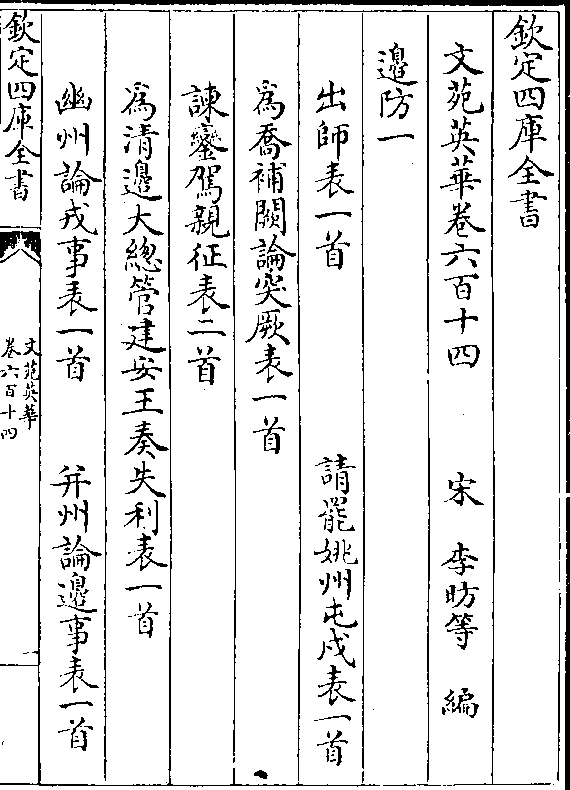 欽定四庫全書
文苑英華卷六百十四 宋 李昉等 編
邊防一
出師表一首 請罷姚州屯戍表一首
為喬補闕論突厥表一首
諫鑾駕親征表二首
為清邊大總管建安王奏失利表一首
幽州論戎事表一首 并州論邊事表一首
欽定四庫全書
文苑英華
卷六百十四